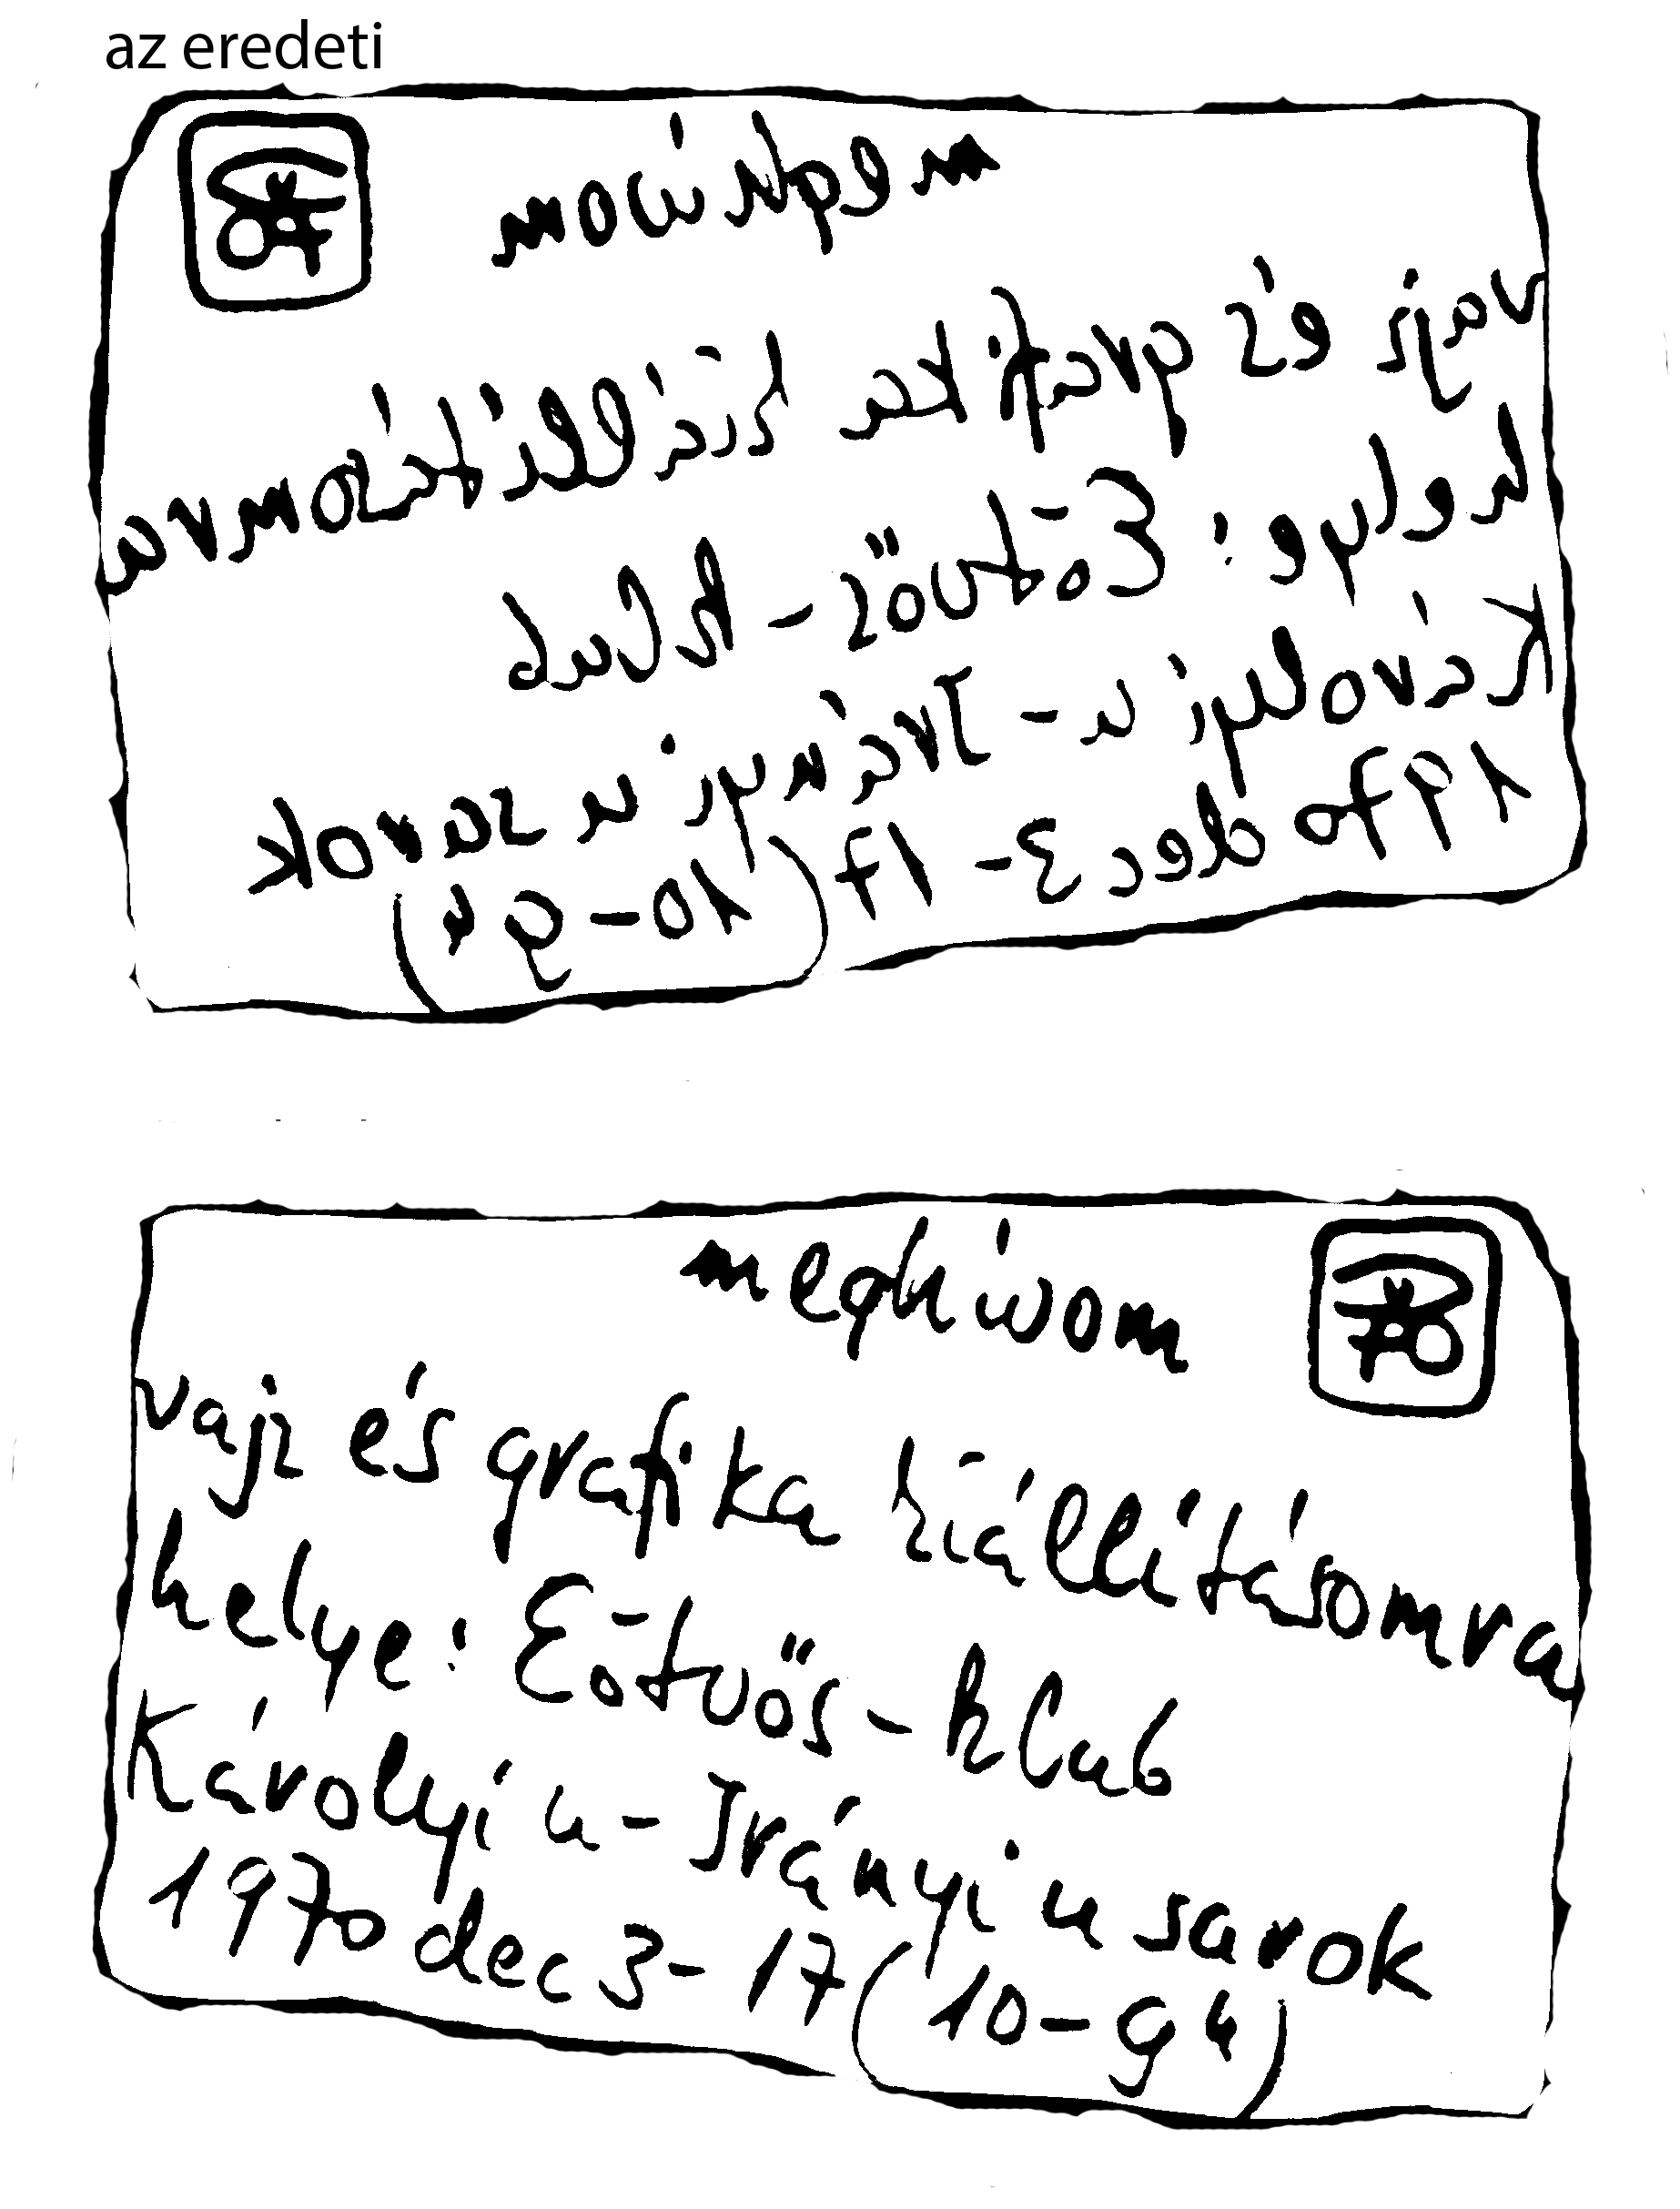 az eredeti
meghívom
vajz és grafika kiállításomra
helye: Eötvös-klub
Károlyi u-Irányi u sarok
1970 dec 3-17 (10-9h)
meghívom
vajz és grafika kiállításomra
helye: Eötvös-klub
Károlyi u-Irányi u sarok
1970 dec 3-17 (10-9h)